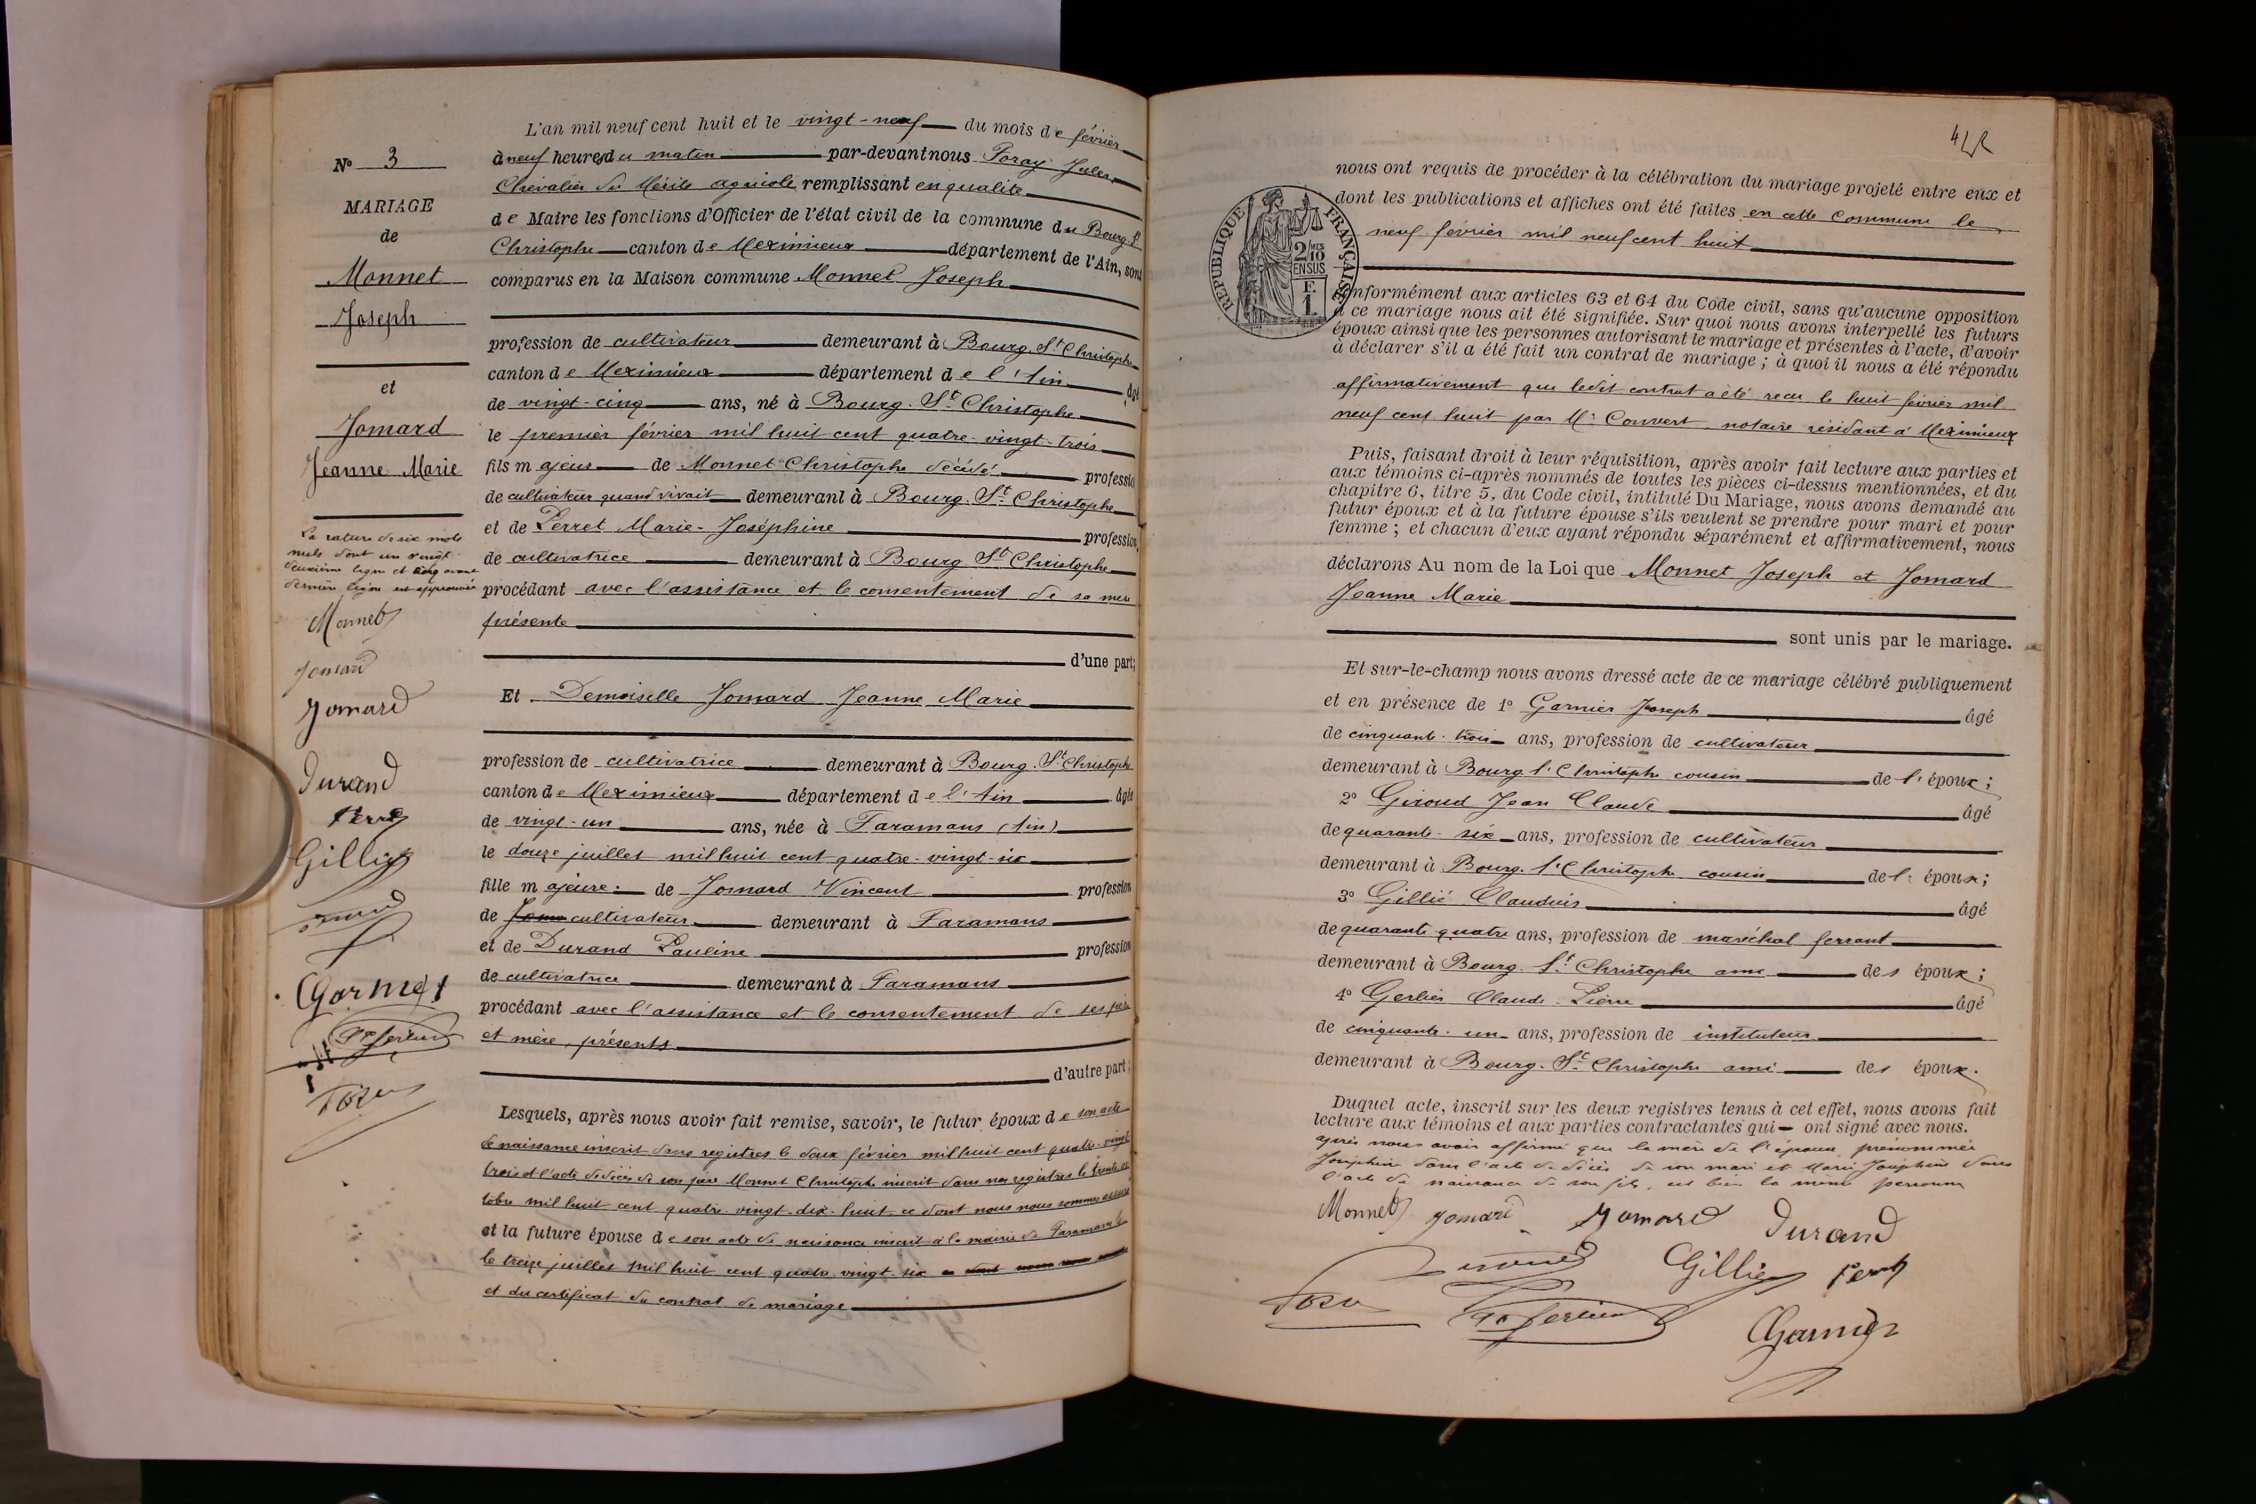 L'an mil neuf cent huit et le vingt-neuf du mois de février
à neuf heures du matin par-devant nous Foray Jules,
Chevalier du Mérite agricole remplissant en qualité
de Maire les fonctions d'Officier de l'état civil de la commune du Bourg St
Christophe canton de Meximieux département de l'Ain, sont
comparus en la Maison commune Monnet Joseph
profession de cultivateur demeurant à Bourg. St Christophe
canton de Meximieux département de l'Ain âgé
de vingt-cinq ans, né à Bourg. St Christophe
le premier février mil huit cent quatre-vingt-trois
fils majeur de Monnet Christophe décédé profession
de cultivateur quand vivait demeurant à Bourg. St Christophe
et de Perret Marie-Joséphine profession
de cultivatrice demeurant à Bourg St Christophe
procédant avec l'assistance et le consentement de sa mère
présente
d'une part;
Et Demoiselle Jomard Jeanne Marie
profession de cultivatrice demeurant à Bourg. St Christophe
canton de Meximieux département de l'Ain âgée
de vingt-un ans, née à Faramans (Ain)
le douze juillet mil huit cent quatre-vingt-six
fille majeure de Jomard Vincent profession
de cultivateur demeurant à Faramans
et de Durand Pauline profession
de cultivatrice demeurant à Faramans
procédant avec l'assistance et le consentement de ses père
et mère, présents
d'autre part.
Lesquels, après nous avoir fait remise, savoir, le futur époux de son acte
de naissance inscrit dans registres le deux février mil huit cent quatre-vingt
trois et l'acte de décès de son père Monnet Christophe inscrit dans nos registres le trente oc
tobre mil huit cent quatre-vingt-dix-huit ce dont nous nous sommes assuré
et la future épouse de son acte de naissance inscrit à la mairie de Faramans le
le treize juillet mil huit cent quatre vingt-six
et du certificat du contrat de mariage
No 3
MARIAGE
de
Monnet
Joseph
et
Jomard
Jeanne Marie
La rature de six mots
nuls dont un vingt-
deuxième ligne et cinq avant
dernière ligne est approuvée
Monnet
Jomard
Jomard
Durand
Perret
Gillié
Garnier
Foray
42
nous ont requis de procéder à la célébration du mariage projeté entre eux et
dont les publications et affiches ont été faites en cette commune le
neuf février mil neuf cent huit
RÉPUBLIQUE FRANÇAISE
2/10 EN SUS
E
1
conformément aux articles 63 et 64 du Code civil, sans qu'aucune opposition
à ce mariage nous ait été signifiée. Sur quoi nous avons interpellé les futurs
époux ainsi que les personnes autorisant le mariage et présentes à l'acte, d'avoir
à déclarer s'il a été fait un contrat de mariage ; à quoi il nous a été répondu
affirmativement que ledit contrat a été reçu le huit février mil
neuf cent huit par Me Convert notaire résidant à Meximieux
Puis, faisant droit à leur réquisition, après avoir fait lecture aux parties et
aux témoins ci-après nommés de toutes les pièces ci-dessus mentionnées, et du
chapitre 6, titre 5, du Code civil, intitulé Du Mariage, nous avons demandé au
futur époux et à la future épouse s'ils veulent se prendre pour mari et pour
femme ; et chacun d'eux ayant répondu séparément et affirmativement, nous
déclarons Au nom de la Loi que Monnet Joseph et Jomard
Jeanne Marie
sont unis par le mariage.
Et sur-le-champ nous avons dressé acte de ce mariage célébré publiquement
et en présence de 1° Garnier Joseph âgé
de cinquante-trois ans, profession de cultivateur
demeurant à Bourg St Christophe cousin de l'époux ;
2° Giroud Jean Claude âgé
de quarante-six ans, profession de cultivateur
demeurant à Bourg. St Christophe cousin de l'époux ;
3° Gillié Claudius âgé
de quarante quatre ans, profession de maréchal ferrant
demeurant à Bourg. St Christophe ami des époux ;
4° Gerlier Claude-Pierre âgé
de cinquante-un ans, profession de instituteur
demeurant à Bourg. St Christophe ami des époux.
Duquel acte, inscrit sur les deux registres tenus à cet effet, nous avons fait
lecture aux témoins et aux parties contractantes qui ont signé avec nous.
après nous avoir affirmé que la mère de l'époux, prénommée
Joséphine dans l'acte de décès de son mari et Marie Joséphine dans
l'acte de naissance de son fils, est bien la même personne
Monnet Jomard Jomard Durand
Gillié Perret
Foray Gerlier
Garnier